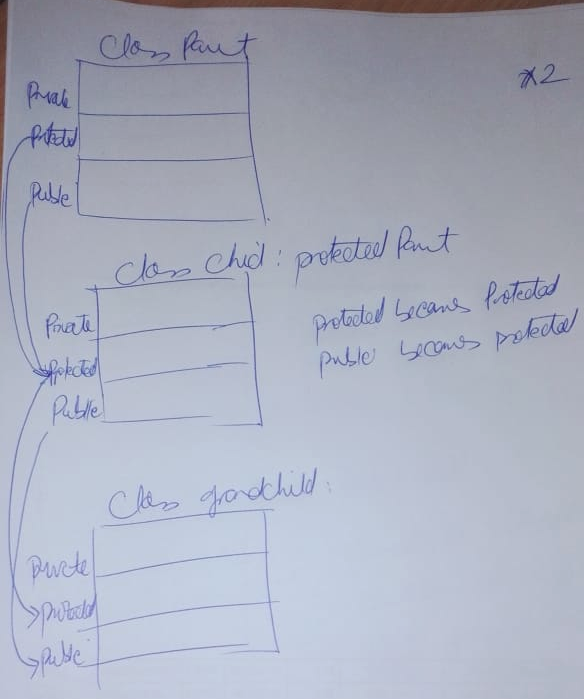 Class Parent
x2
Private
Protected
Public
Class Chid : protected Parent
Private
Protected
Public
protected becams Protected
public becams protected
Class grandchild :
private
protected
public